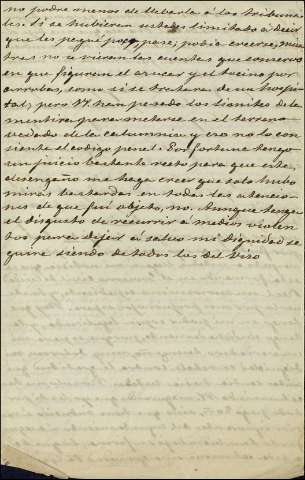 no podré menos de llevarla á los tribuna-
les. Si se hubieran ustedes limitado á decir
que les pagué poco, pase; podia creerse, mien
tras no se vieran las cuentas que conservo
en que figuran el azucar y el tocino por
arrobas, como si se tratara de un hospi-
tal; pero VV. han pasado los limites de la
mentira para meterse en el terreno
vedado de la calumnia y eso no lo con
siente el codigo penal. Por fortuna tengo
un juicio bastante recto para que este
desengaño me haga creer que solo hubo
miras bastardas en todas las atencio-
nes de que fui objeto, no. Aunque tenga
el disgusto de recurrir á medios violen
tos para dejar á salvo mi dignidad se
guiré siendo de todos los del Viso